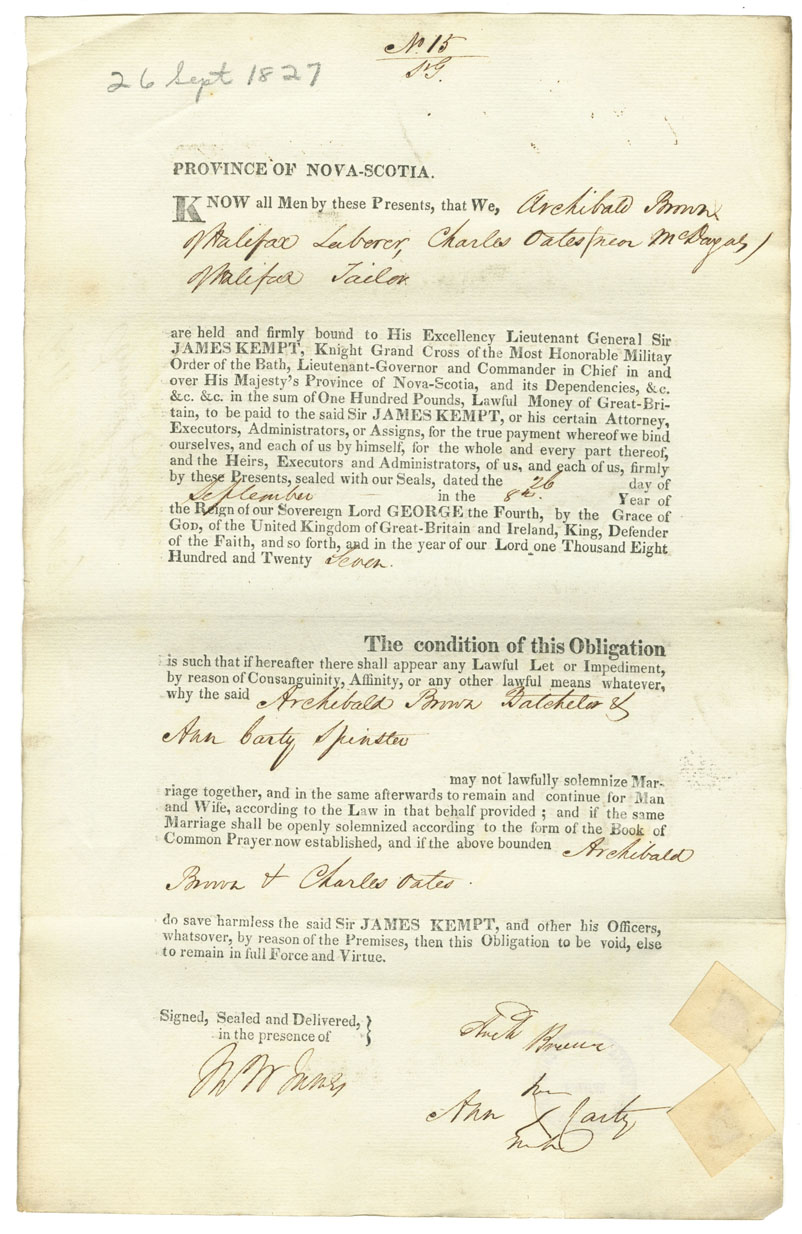 No. 15
26 Sept 1827
PROVINCE OF NOVA-SCOTIA.
KNOW all Men by these Presents, that We, Archibald Brown
of Halifax Laborer, Charles Oates (near McDougals)
of Halifax Tailor
are held and firmly bound to His Excellency Lieutenant General Sir
JAMES KEMPT, Knight Grand Cross of the Most Honorable Militay
Order of the Bath, Lieutenant-Governor and Commander in Chief in and
over His Majesty's Province of Nova-Scotia, and its Dependencies, &c.
&c. &c. in the sum of One Hundred Pounds, Lawful Money of Great-Bri-
tain, to be paid to the said Sir JAMES KEMPT, or his certain Attorney,
Executors, Administrators, or Assigns, for the true payment whereof we bind
ourselves, and each of us by himself, for the whole and every part thereof,
and the Heirs, Executors and Administrators, of us, and each of us, firmly
by these Presents, sealed with our Seals, dated the 26 day of
September in the 8th. Year of
the Reign of our Sovereign Lord GEORGE the Fourth, by the Grace of
GOD, of the United Kingdom of Great-Britain and Ireland, King, Defender
of the Faith, and so forth, and in the year of our Lord one Thousand Eight
Hundred and Twenty Seven.
The condition of this Obligation
is such that if hereafter there shall appear any Lawful Let or Impediment,
by reason of Consanguinity, Affinity, or any other lawful means whatever,
why the said Archibald Brown Batchelor &
Ann Carty Spinster
may not lawfully solemnize Mar-
riage together, and in the same afterwards to remain and continue for Man
and Wife, according to the Law in that behalf provided ; and if the same
Marriage shall be openly solemnized according to the form of the Book of
Common Prayer now established, and if the above bounden Archibald
Brown & Charles Oates.
do save harmless the said Sir JAMES KEMPT, and other his Officers,
whatsover, by reason of the Premises, then this Obligation to be void, else
to remain in full Force and Virtue.
Signed, Sealed and Delivered,
in the presence of
Archd Brown
her
Ann X Carty
mark